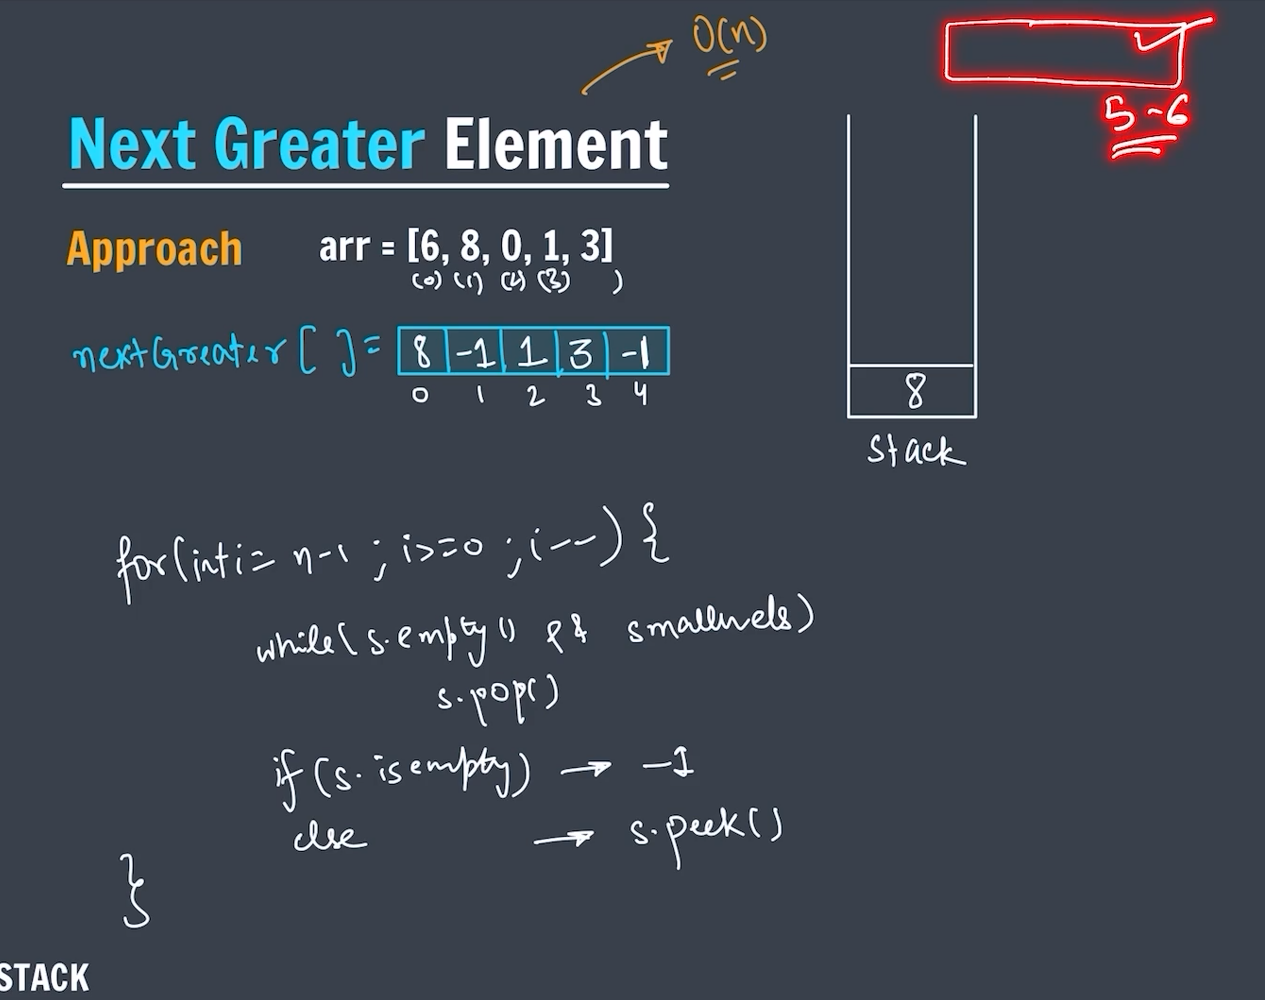 O(n)
5-6
Next Greater Element
Approach arr = [6, 8, 0, 1, 3]
(0) (1) (2) (3) )
nextGreater [ ] = 8 -1 1 3 -1
0 1 2 3 4
8
Stack
for(int i = n-1 ; i>=0 ; i--) {
while( s.empty() &&
s.pop()
if (s.isempty) → -1
else → s.peek()
}
STACK